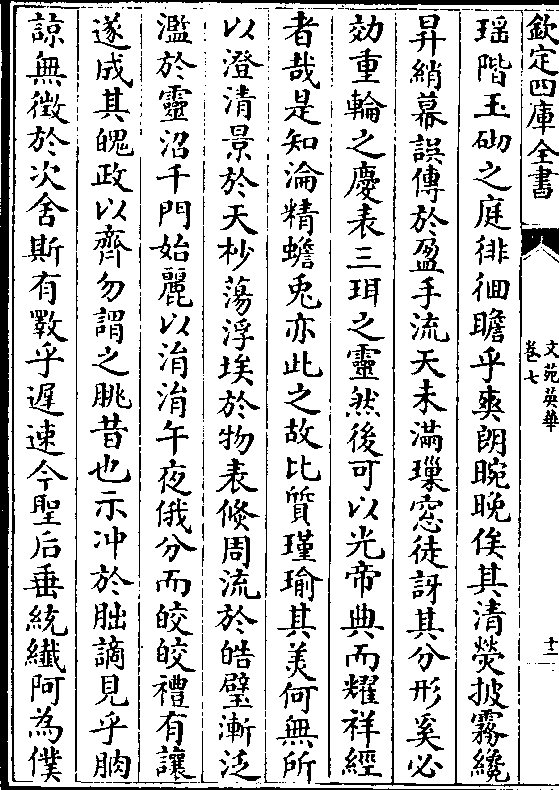 欽定四庫全書
文苑英華
卷七
十二
瑶階玉砌之庭徘徊瞻乎爽朗晼晚俟其清熒披霧纔
昇綃幕誤傳於盈手流天未滿璅窓徒訝其分形奚必
効重輪之慶表三珥之靈然後可以光帝典而耀祥經
者哉是知淪精蟾兎亦此之故比質瑾瑜其美何無所
以澄清景於天杪蕩浮埃於物表倐周流於皓璧漸泛
濫於靈沼千門始麗以涓涓午夜俄分而皎皎禮有讓
遂成其魄政以齊勿謂之朓昔也示冲於朏謫見乎朒
諒無徴於次舍斯有斁乎遲速今聖后垂統纎阿為僕